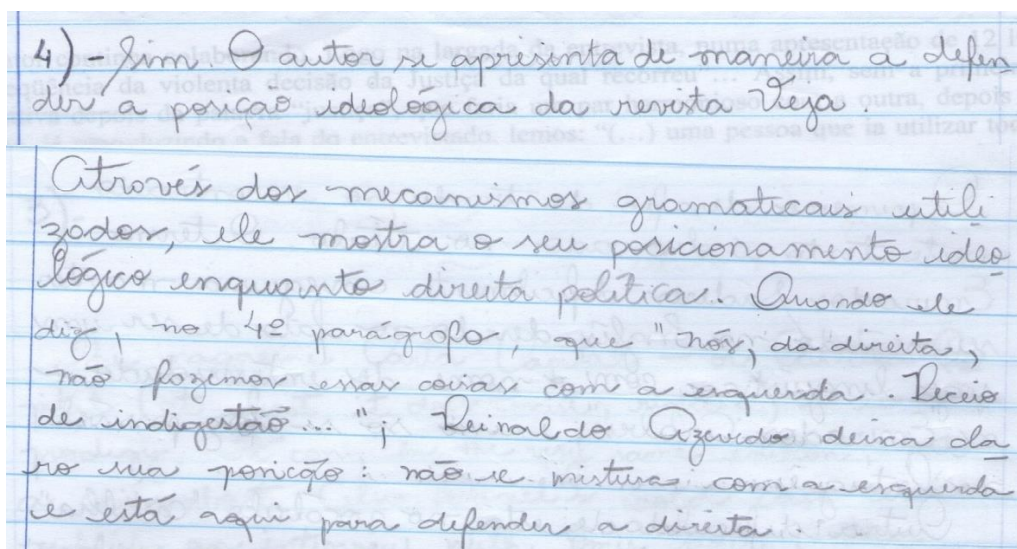 4) - Sim. O autor se apresenta de maneira a defen
der a posição ideológica da revista Veja.
Através dos mecanismos gramaticais utili
zados, ele mostra o seu posicionamento ideo
lógico enquanto direita política. Quando ele
diz, no 4º parágrafo, que "nós, da direita,
não fazemos essas coisas com a esquerda. Receio
de indigestão..."; Reinaldo Azevedo deixa cla
ro sua posição: não se mistura com a esquerda
e está aqui para defender a direita.